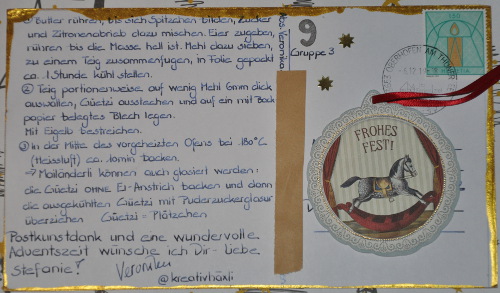 ① Butter rühren, bis sich Spitzchen bilden, Zucker
und Zitronenabrieb dazu mischen. Eier zugeben,
rühren bis die Masse hell ist. Mehl dazu sieben,
zu einem Teig zusammenfügen, in Folie gepackt
ca. 1 Stunde kühl stellen.
② Teig portionenweise auf wenig Mehl 6mm dick
auswallen, Güetzi ausstechen und auf ein mit Back
papier belegtes Blech legen.
Mit Eigelb bestreichen.
③ In der Mitte des vorgeheizten Ofens bei 180°C
(Heissluft) ca. 10min backen.
→ Mailänderli können auch glasiert werden:
die Güetzi OHNE Ei-Anstrich backen und dann
die ausgekühlten Güetzi mit Puderzuckerglasur
überziehen Güetzi = Plätzchen
Postkunstdank und eine wundervolle
Adventszeit wünsche ich Dir - liebe
Stefanie!
Veronika
@kreativhäxli
Veronika
9
Gruppe 3
150
HELVETIA
FROHES
FEST!